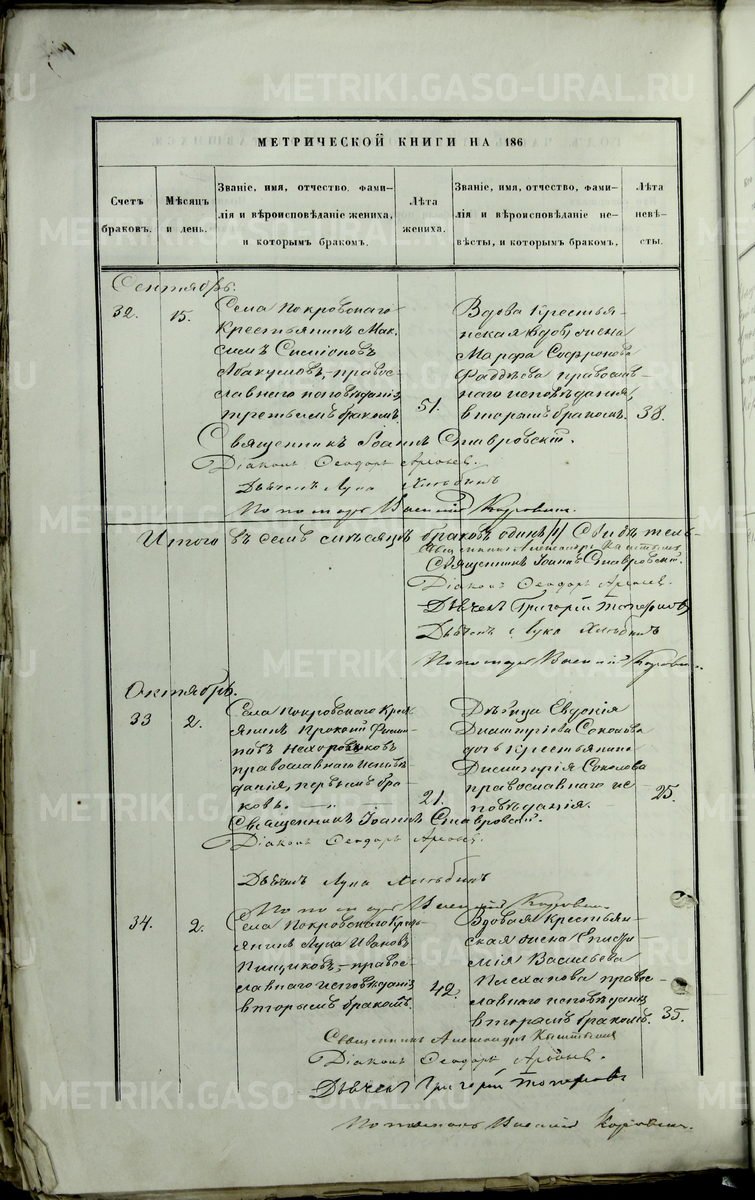 METRIKI.GASO-URAL.RU
МЕТРИЧЕСКОЙ КНИГИ НА 186
Счетъ браковъ.
Мѣсяцъ и день.
Званіе, имя, отчество, фами-
лія и вѣроисповѣданіе жениха,
и которымъ бракомъ.
Лѣта жениха.
Званіе, имя, отчество, фами-
лія и вѣроисповѣданіе не-
вѣсты, и которымъ бракомъ.
Лѣта невѣ-
сты.
Сентябрь.
32. 15.
Села Покровскаго
крестьянинъ Мак-
симъ Симіоновъ
Абакумовъ, правос-
лавнаго исповѣданія,
третьимъ бракомъ.
51.
Вдова крестья-
нская жена
Марфа Софронова
Фаддѣева православ-
наго исповѣданія,
вторымъ бракомъ.
38.
Священникъ Іоаннъ Ставровскій.
Діаконъ Ѳеодоръ
Дьячекъ Лука
Пономарь Василій
Итого въ семъ мѣсяцѣ браковъ одинъ (1) Свидѣтель-
Священникъ Александръ
Священникъ Іоаннъ Ставровскій.
Діаконъ Ѳеодоръ
Дьячекъ Григорій Топорковъ
Дьячекъ Лука
Пономарь Василій
Октябрь.
33 2.
Села Покровскаго Крест-
янинъ Прокопій Филип-
повъ
православнаго исповѣ-
данія, первымъ бра-
комъ.
21.
Дѣвица Евдокія
Димитріева Соколова
дочь крестьянина
Димитрія Соколова
православнаго ис-
повѣданія.
25.
Священникъ Іоаннъ Ставровскій.
Діаконъ Ѳеодоръ
Дьячекъ Лука
Пономарь Василій
34. 2.
Села Покровскаго Кресть-
янинъ Лука Ивановъ
Пищиковъ, правос-
лавнаго исповѣданія,
вторымъ бракомъ.
42.
Вдовая Крестьян-
ская жена Еписти-
мія Васильева
Плеханова правос-
лавнаго исповѣданія,
вторымъ бракомъ.
35.
Священникъ Александръ
Діаконъ Ѳеодоръ
Дьячекъ Григорій Топорковъ
Пономарь Василій